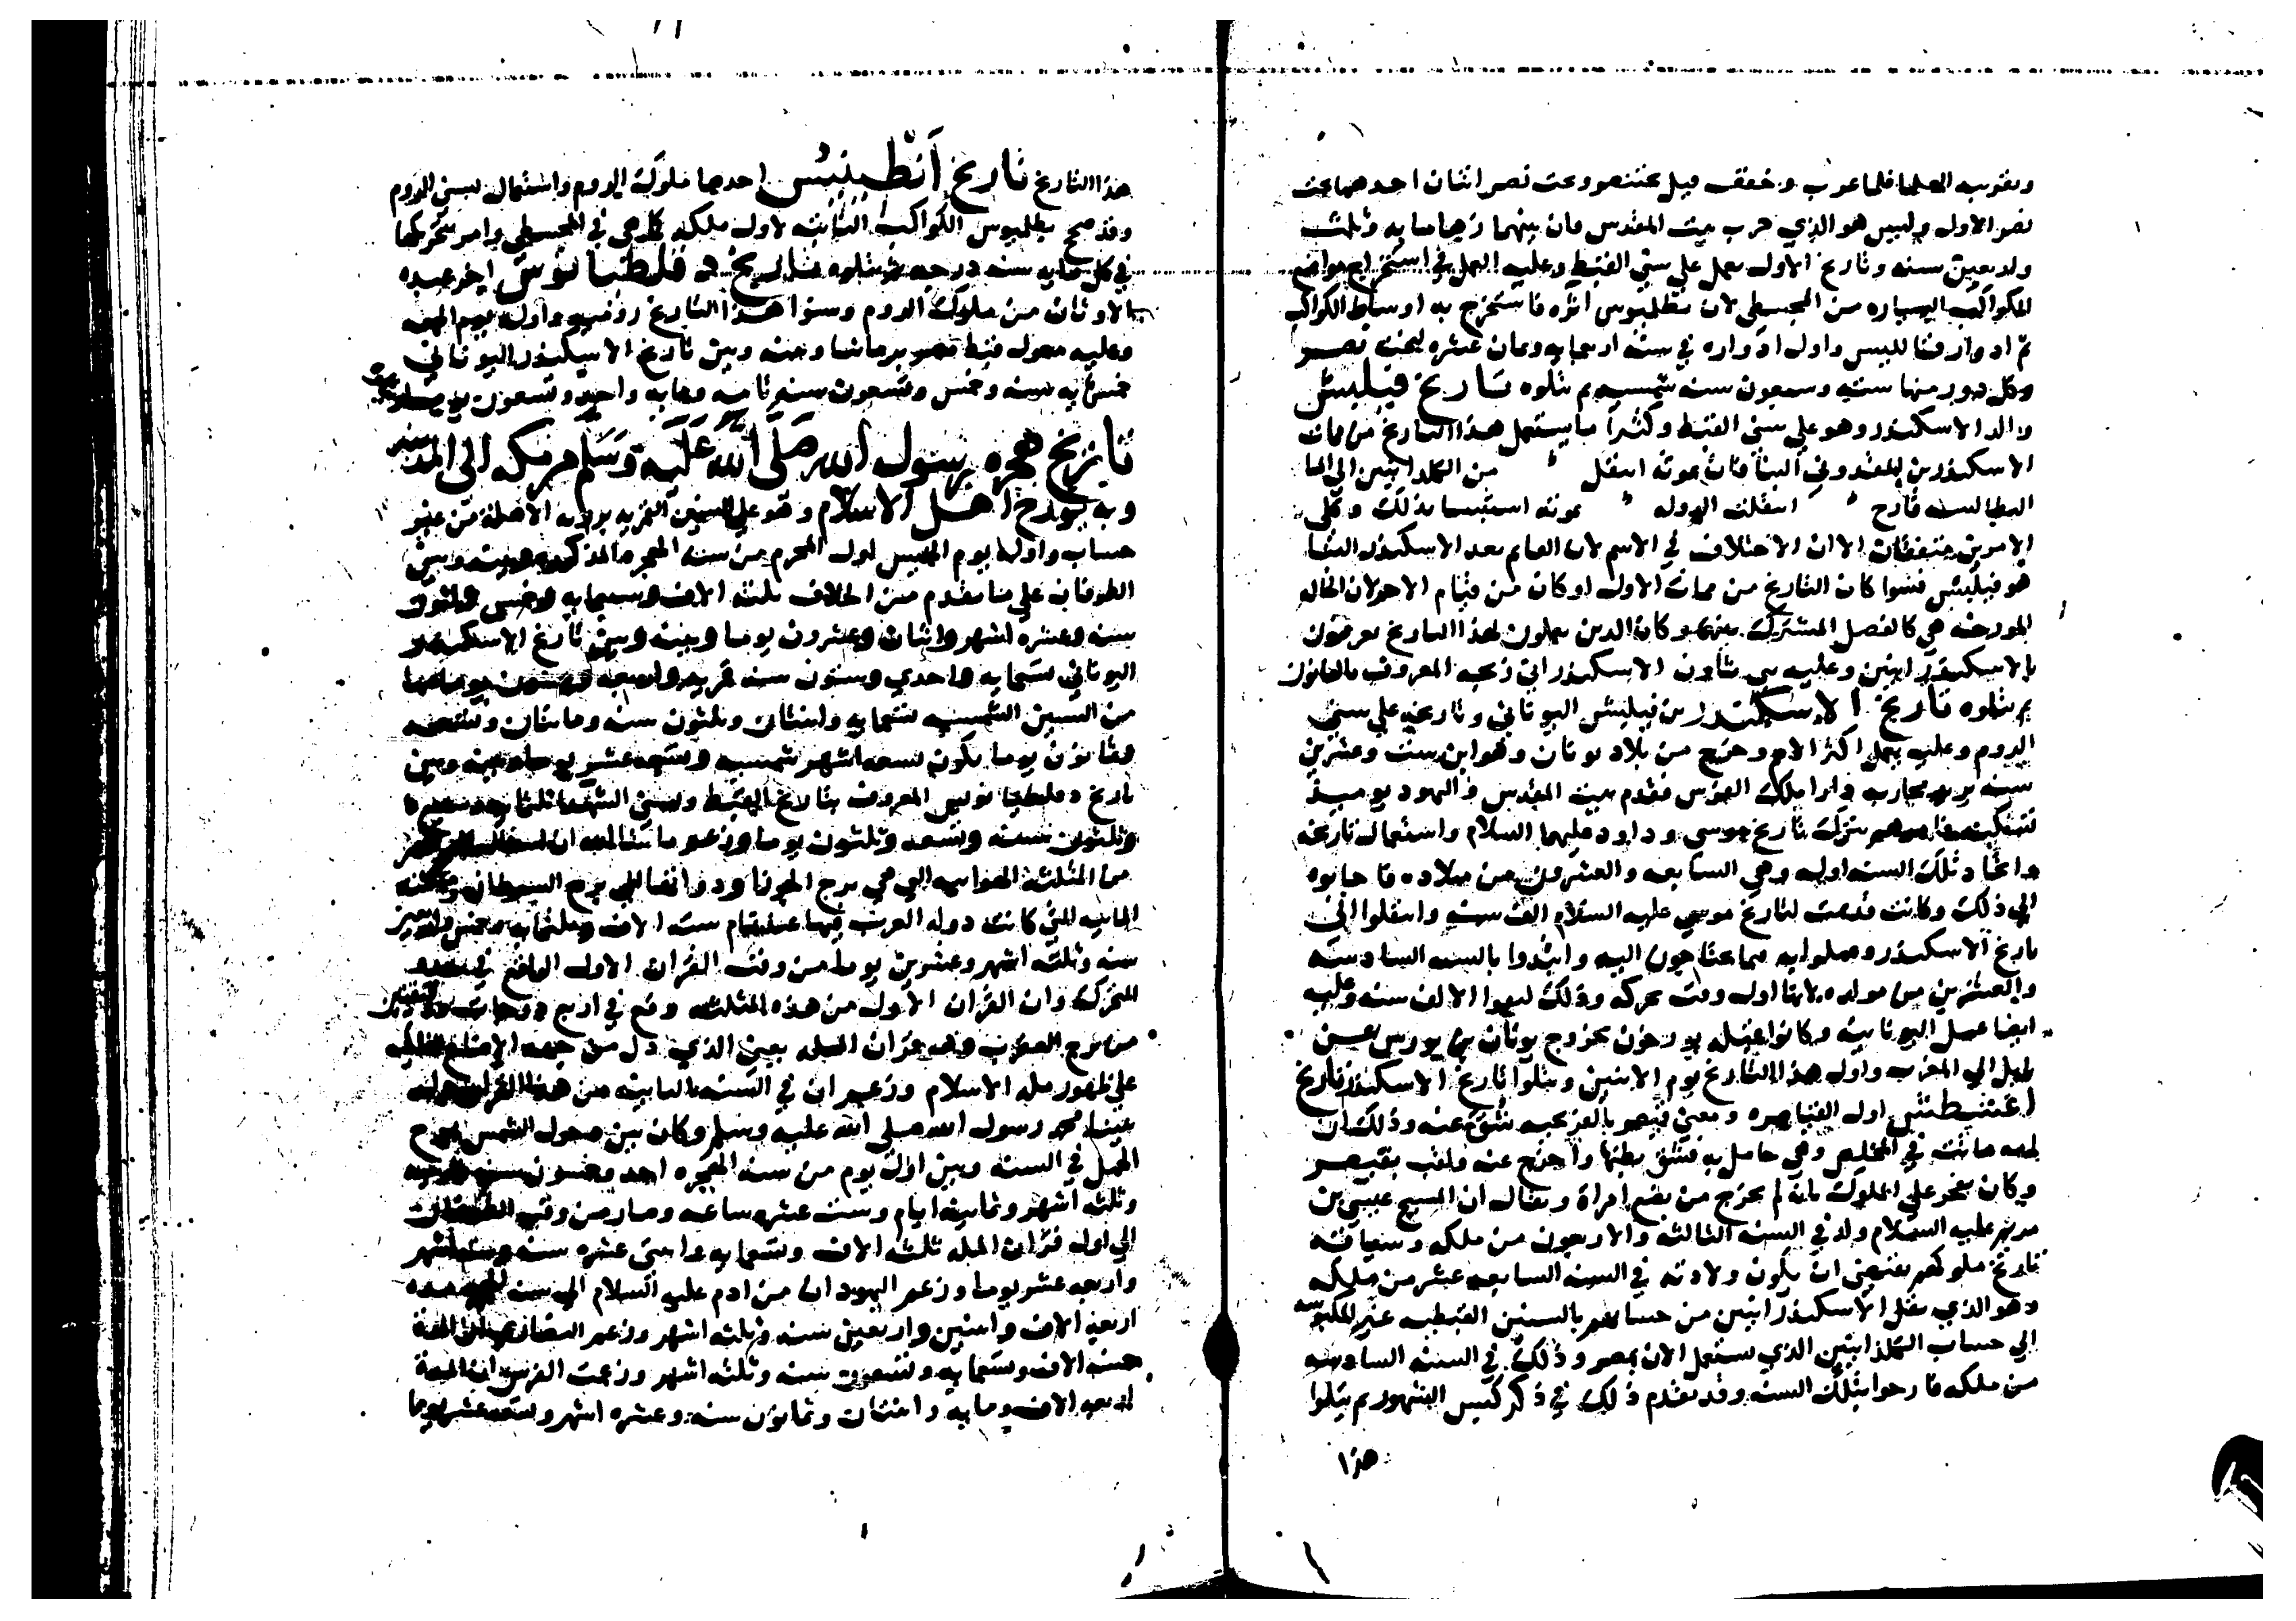 وتقويه العلما فلما عرب وخفف قيل بختنصر وبخت نصر اثنان احدهما بخت
نصر الاول وليس هو الذي خرب بيت المقدس فان بينهما زها مايه وثلث
واربعين سنه وتاريخ الاول يعمل علي سني القبط وعليه العمل في استخراج مواضع
الكواكب السياره من المجسطي لان بطلميوس اثره فاستخرج به اوساط الكواكب
ثم ادوار قاللبس واول ادواره في سنة اربعمايه وثمان عشره لبخت نصر
وكل دور منها ستة وسبعون سنه شمسيه ثم يتلوه تاريخ فيلبس
والد الاسكندر وهو علي سني القبط وكثيرا ما يستعمل هذا التاريخ من ممات
الاسكندر بن المقدوني البنا فان بموته انتقل من الكلدانيين الي
البطالسه فارخ انتقلت الدوله بموته استبسا بذلك وكلي
الامرين متفقان الا ان الاختلاف في الاسم لان القايم بعد الاسكندر البنا
هو فيلبس فسوا كان التاريخ من ممات الاول او كان من قيام الاخر لان الحاله
المورخه هي كالفصل المشترك بينهما وكان الدين يعملون بهذا التاريخ يعرفون
بالاسكندرانيين وعليه بني ثاون الاسكندراني زيجه المعروف بالقانون
ثم يتلوه تاريخ الاسكندر بن فيلبس اليوناني وتاريخه علي سني
الروم وعليه يعمل اكثر الامم وخرج من بلاد يونان وهو ابن ست وعشرين
سنه يريد محاربه دارا ملك الفرس فقدم بيت المقدس و اليهود يوميذ
بترك تاريخ موسي وداود عليهما السلام واستعمال تاريخه
واتخاد تلك السنه اوله وهي السابعه والعشرون من ميلاده فاجابوه
الي ذلك وكانت قد مت لتاريخ موسي عليه السلام الف سنه وانتقلوا الي
تاريخ الاسكندر وعملوا به فيما يحتاجون اليه وابتدوا بالسنه السادسه
والعشرين من مولده لانها اول وقت تحركه وذلك ليتموا الالف سنه وعليه
ايضا عمل اليونانيه وكانوا قبله يورخون بخروج يونان بن يورس عن
بابل الي المغرب واول هذا التاريخ يوم الاثنين ويتلوا تاريخ الاسكندر تاريخ
اغشطش اول القياصره ومعني قيصر بالفرنجيه شق عنه وذلك ان
امه ماتت في المخاض وهي حامل به فشق بطنها واخرج عنه ولقب بقيصر
وكان يفخر علي الملوك بانه لم يخرج من بضع امراة ويقال ان المسيح عيسي بن
مريم عليه السلام ولد في السنه الثالثه والاربعون من ملكه وسياقه
تاريخ ملوكهم تقتضي ان يكون ولادته في السنه السابعه عشر من ملكه
وهو الذي نقل الاسكندرانيين من حسابهم بالسنين القبطيه غير المكبوسه
الي حساب الكلدانيين الذي يستعمل الان بمصر وذلك في السنه السادسه
من ملكه فارخوا بتلك السنه وقد تقدم ذلك في ذكر كبس الشهور ثم يتلوا
هذا
هذا التاريخ تاريخ أنطينيس احدهما ملوك الروم واستعمال لسني الروم
وقد صحح بطلميوس الكواكب الثابته لاول ملكه كما هي في المجسطي وامر بتحركها
في كل مايه سنه درجه ثم يتلوه تاريخ د قلطيانوس اخر عبده
الاوثان من ملوك الروم وسنوا هذا التاريخ روميه واوله يوم الجمعه
وعليه معول قبط مصر برماننا ومنه وبين تاريخ الاسكندر اليوناني
خمسمايه سنه وخمس وتسعون سنه تامه ومايه واحد وتسعون يوما
تاريخ هجره رسول الله صلي الله عليه وسلم من مكه الي المدينه
وبه يورخ اهل الاسلام وهو علي السنين القمريه برويه الاهله من غير
حساب واوله يوم الخميس اول المحرم من سنه الهجره المذكوره وبين
الطوفان علي ما تقدم من الخلاف ثلثه الاف وسبعمايه وخمس وثلثون
سنه وعشره اشهر واثنان وعشرون يوما وبينه وبين تاريخ الاسكندر
اليوناني تسعمايه واحدي وستون سنه قمريه
من السنين الشمسيه تسعمايه واثنتان وثلثون سنه ومايتان وتسعه
وثمانون يوما يكون تسعه اشهر شمسيه وتسعه عشر يوما وبينه وبين
تاريخ دقلطيانوس المعروف بتاريخ القبط وسني الشهدا ثلثمايه
وثلثون سنه وتسعه وثلثون يوما وزعم ما شا الله ان
من المثلثه الهوائيه التي هي برج الجوزا ودوراتها الي برج السرطان
المائيه التي كانت دوله العرب فيها عند تمام ستة الاف وثلثمايه وخمس واربعين
سنه وثلثة اشهر وعشرين يوما من وقت القران الاول الواقع في بدو
التحرك وان القران الاول من هذه المثلثه وقع في اربع درجات ودقيقتين
من برج العقرب وهو قران المله بعين الذي دل من جهه
علي ظهور مله الاسلام وزعم ان في السنه الثانيه من هذا القران
نبينا محمد رسول الله صلي الله عليه وسلم وكان بين دخول الشمس برج
الحمل في السنه وبين اول يوم من سنه الهجره احد وخمسون سنه
وثلثه اشهر وثمانيه ايام وست عشره ساعه وصار من وقت الطوفان
الي اول قران المله ثلثه الاف وتسعمايه واثني عشره سنه وسته اشهر
واربعه عشر يوما وزعم اليهود ان من ادم عليه السلام الي سنه
اربعه الاف واثنين واربعين سنه وثلثه اشهر وزعم النصاري ان المدة
خمسه الاف وتسعمايه وتسعون سنه وثلثه اشهر وزعمت الفرس ان المدة
اربعه الاف ومايه واثنتان وثمانون سنه وعشره اشهر وتسعه عشر يوما